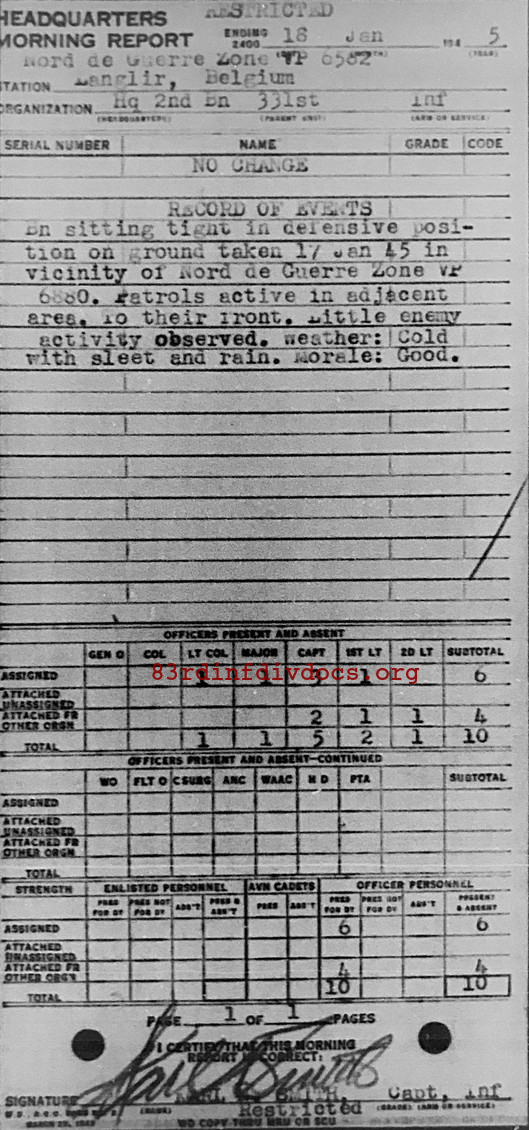 RESTRICTED
HEADQUARTERS
MORNING REPORT ENDING 2400 18 Jan 194 5
(YEAR)
Nord de Guerre Zone VP 6582
STATION Langlir, Belgium
ORGANIZATION Hq 2nd Bn 331st Inf
(HEADQUARTERS) (PARENT UNIT) (ARM OR SERVICE)
SERIAL NUMBER NAME GRADE CODE
NO CHANGE
RECORD OF EVENTS
Bn sitting tight in defensive posi-
tion on ground taken 17 Jan 45 in
vicinity of Nord de Guerre Zone VP
6880. Patrols active in adjacent
area. To their front. Little enemy
activity observed. Weather: Cold
with sleet and rain. Morale: Good.
OFFICERS PRESENT AND ABSENT
GEN O COL LT COL MAJOR CAPT 1ST LT 2D LT SUBTOTAL
ASSIGNED 1 1 3 1 6
83rdinfdivdocs.org
ATTACHED UNASSIGNED
ATTACHED FR OTHER ORGN 2 1 1 4
TOTAL 1 1 5 2 1 10
OFFICERS PRESENT AND ABSENT—CONTINUED
WO FLT O C SURG ANC WAAC H D PTA SUBTOTAL
ASSIGNED
ATTACHED UNASSIGNED
ATTACHED FR OTHER ORGN
TOTAL
STRENGTH ENLISTED PERSONNEL AVN CADETS OFFICER PERSONNEL
PRES FOR DY PRES NOT FOR DY ABS'T PRES & ABS'T PRES ABS'T PRES FOR DY PRES NOT FOR DY ABS'T PRESENT & ABSENT
ASSIGNED 6 6
ATTACHED UNASSIGNED
ATTACHED FR OTHER ORGN 4 4
TOTAL 10 10
PAGE 1 OF 1 PAGES
I CERTIFY THAT THIS MORNING
REPORT IS CORRECT:
SIGNATURE SMITH, Capt, Inf
(NAME) Restricted (GRADE) (ARM OR SERVICE)
NO COPY THRU MRU OR SCU